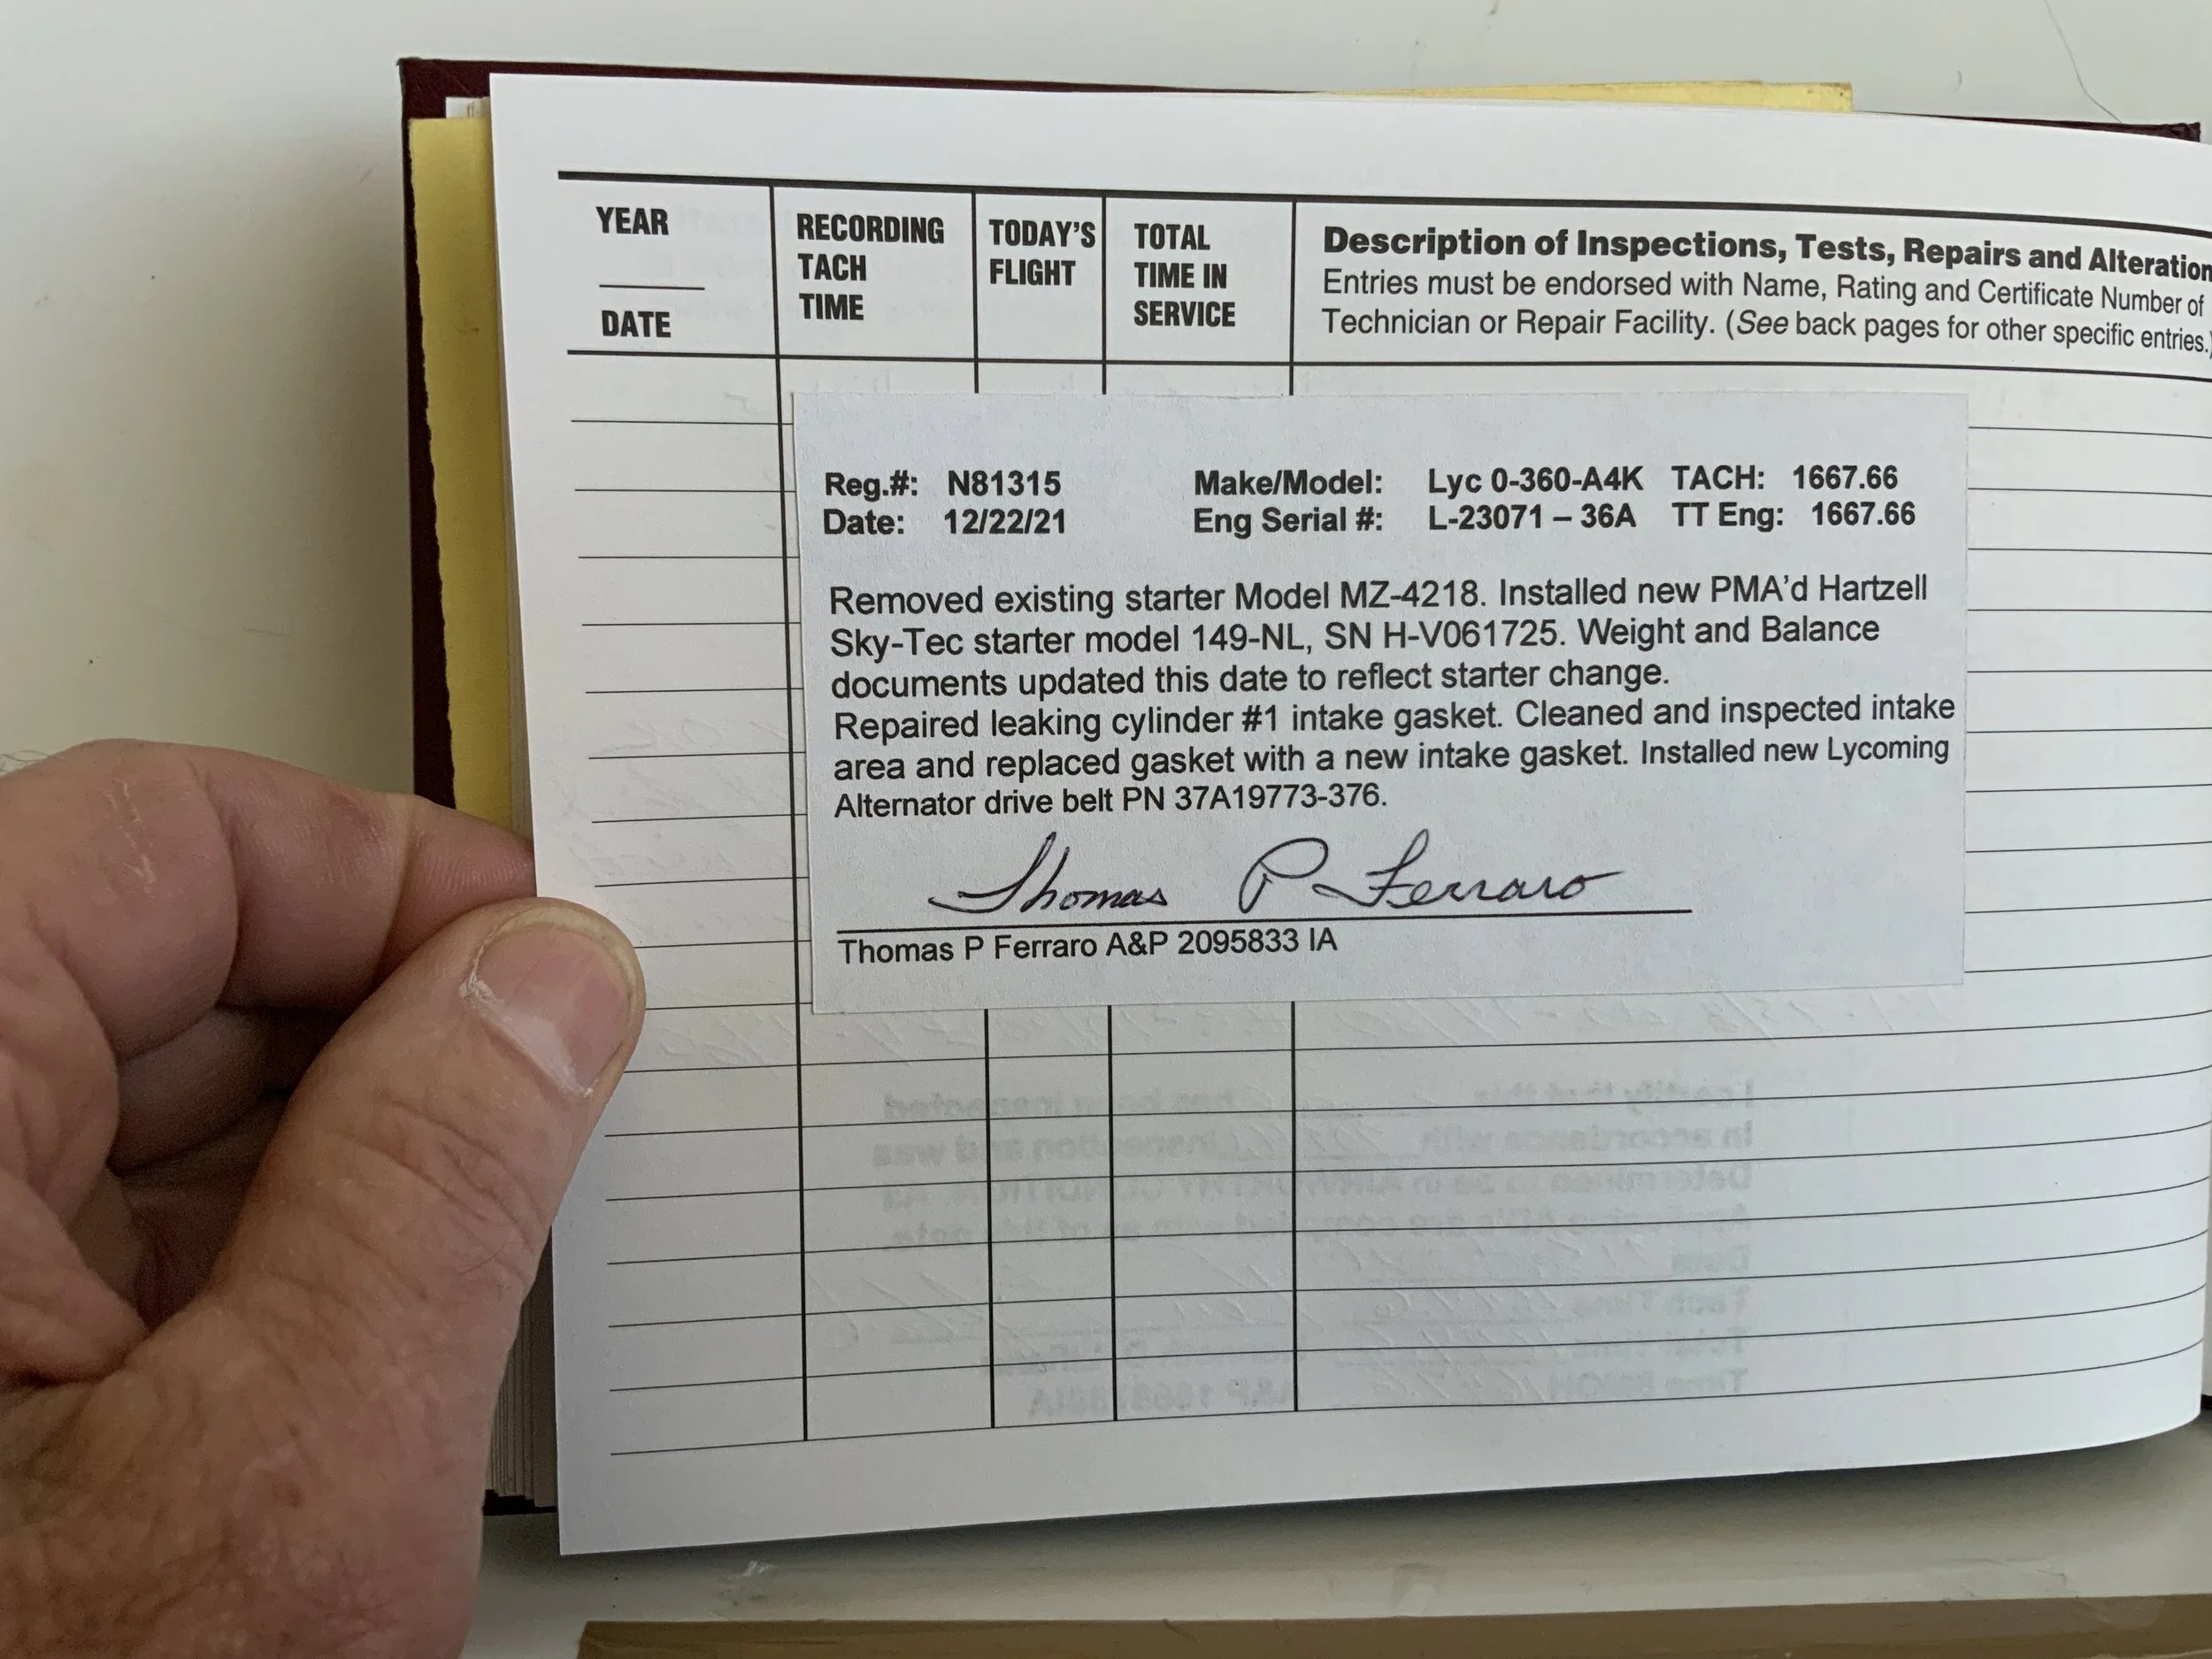 YEAR
DATE
RECORDING
TACH
TIME
TODAY'S
FLIGHT
TOTAL
TIME IN
SERVICE
Description of Inspections, Tests, Repairs and Alteration
Entries must be endorsed with Name, Rating and Certificate Number of
Technician or Repair Facility. (See back pages for other specific entries.)
Reg.#: N81315 Make/Model: Lyc 0-360-A4K TACH: 1667.66
Date: 12/22/21 Eng Serial #: L-23071 – 36A TT Eng: 1667.66
Removed existing starter Model MZ-4218. Installed new PMA'd Hartzell
Sky-Tec starter model 149-NL, SN H-V061725. Weight and Balance
documents updated this date to reflect starter change.
Repaired leaking cylinder #1 intake gasket. Cleaned and inspected intake
area and replaced gasket with a new intake gasket. Installed new Lycoming
Alternator drive belt PN 37A19773-376.
Thomas P Ferraro
Thomas P Ferraro A&P 2095833 IA